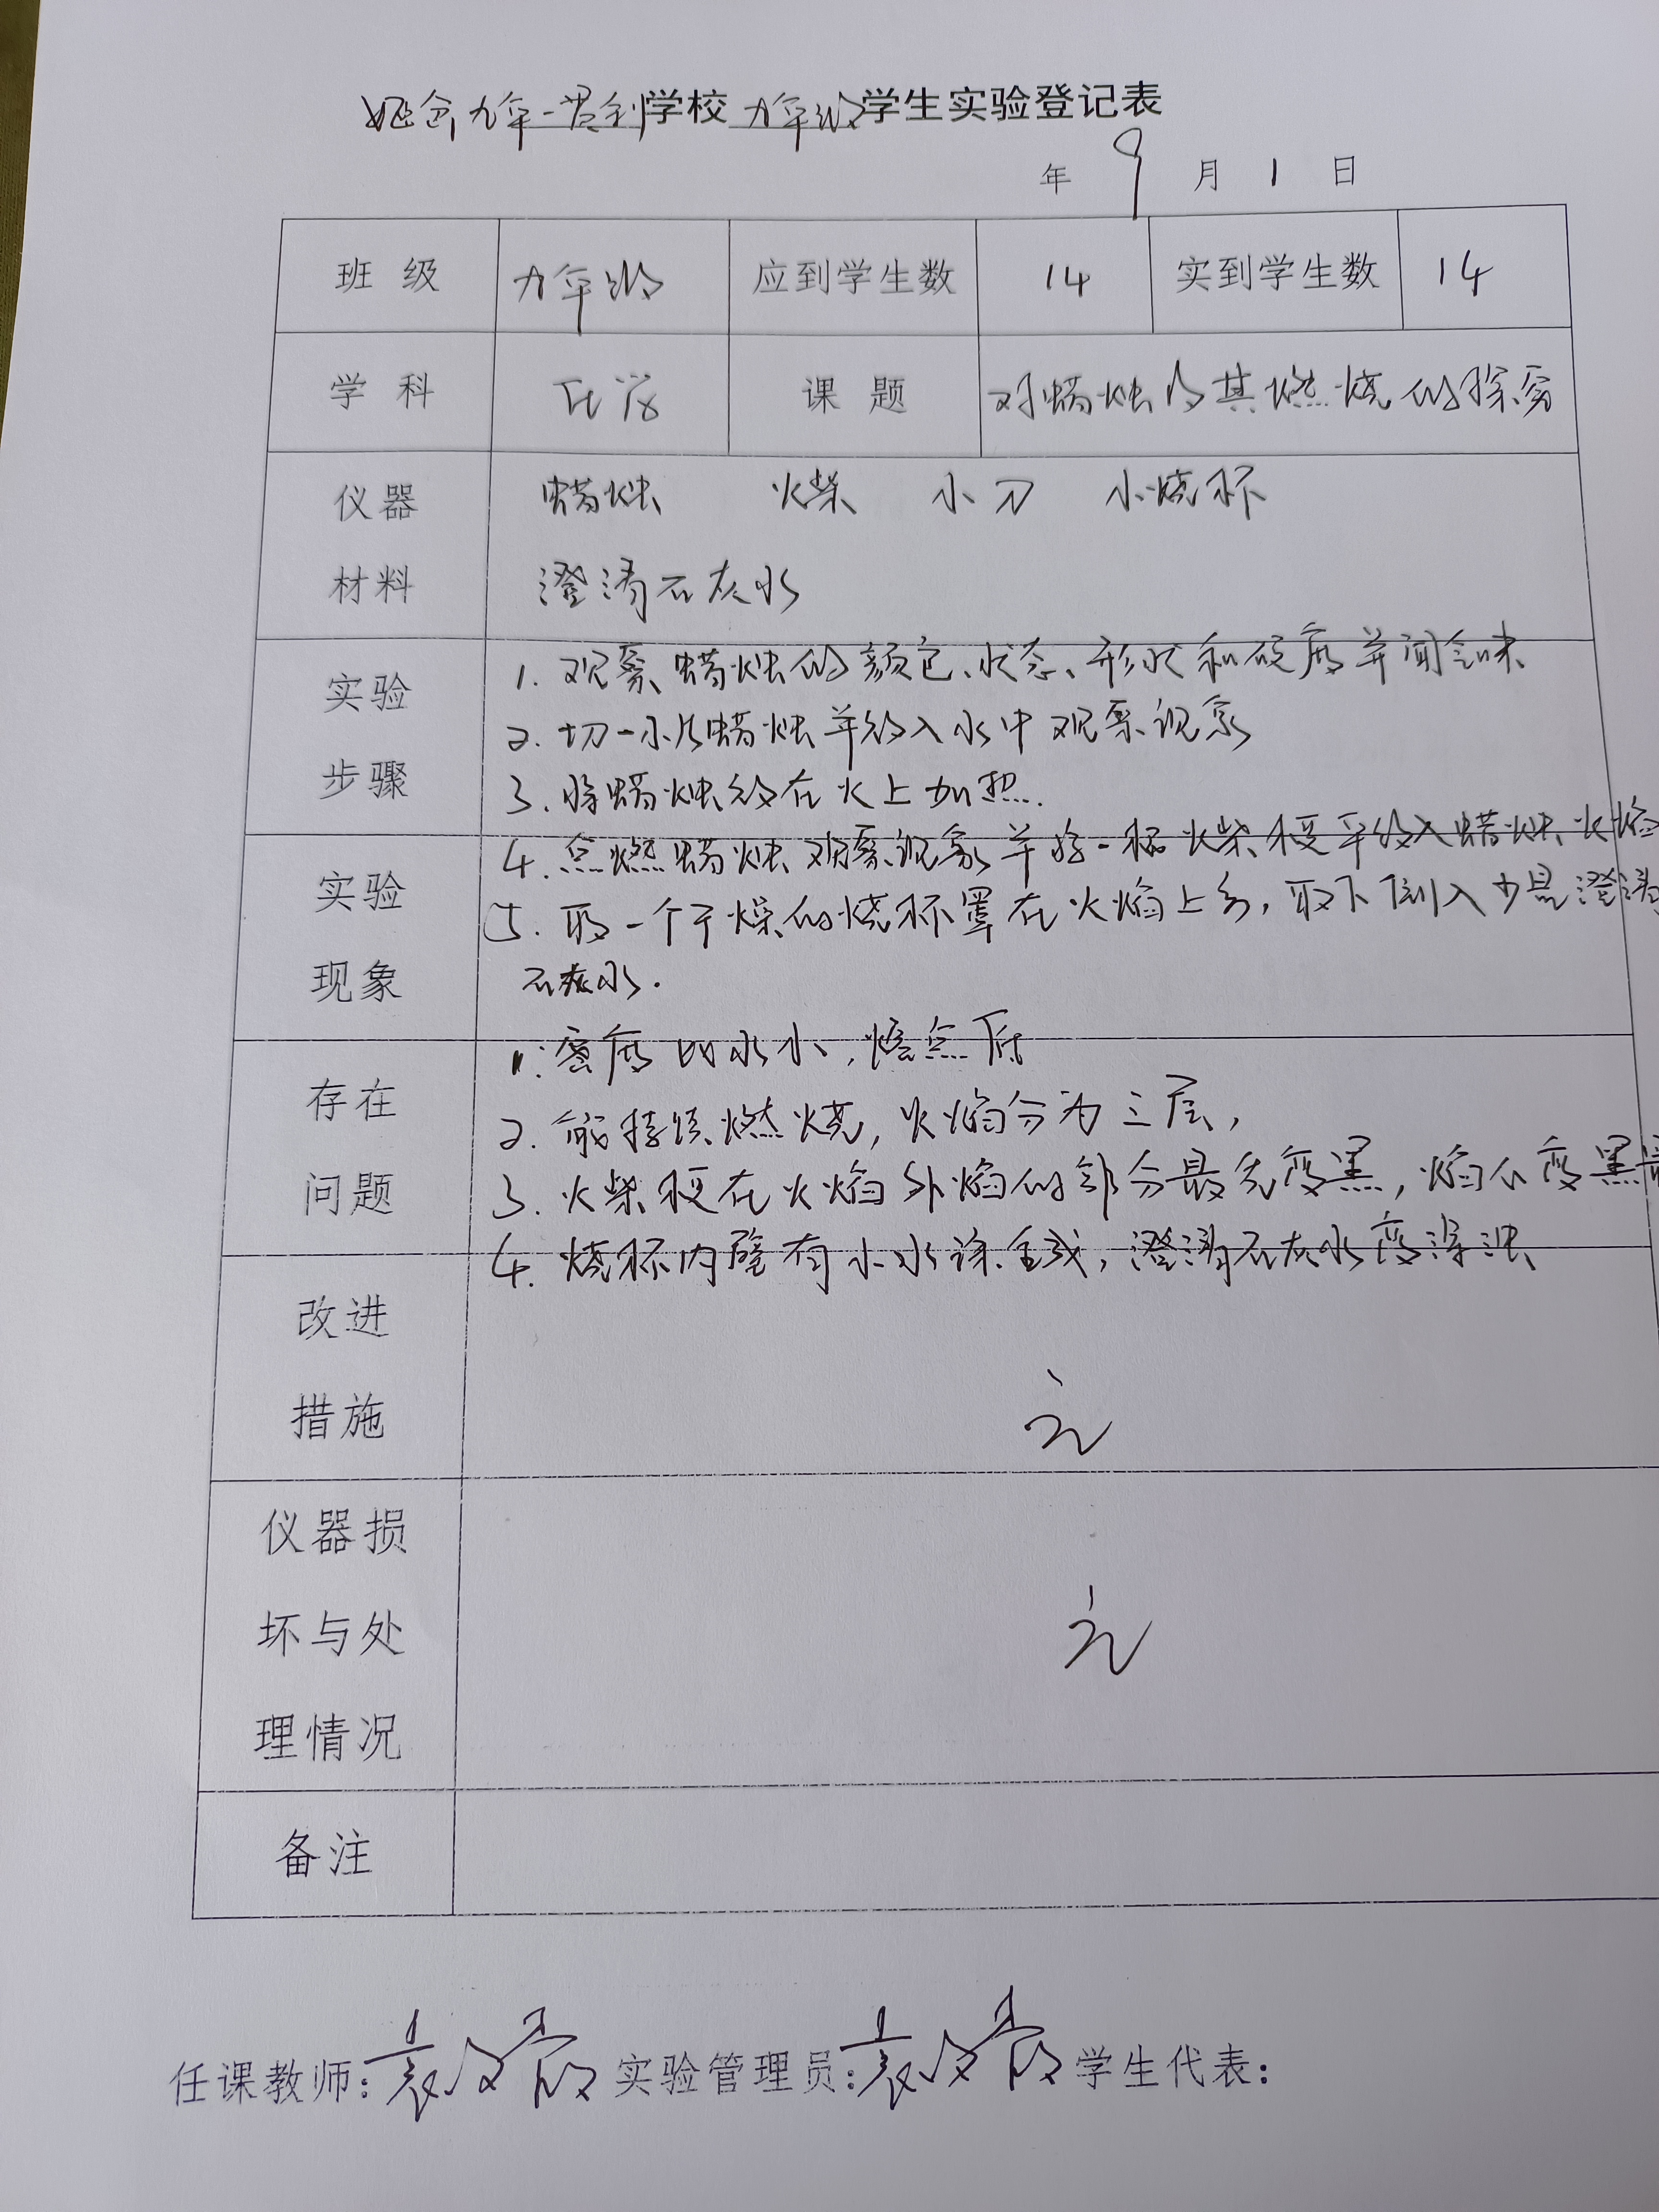 九年一贯制学校 九年级学生实验登记表
年 9 月 1 日
班 级 九年级 应到学生数 14 实到学生数 14
学 科 化学 课 题 对蜡烛及其燃烧的探究
仪器 蜡烛 火柴 小刀 小烧杯
材料 澄清石灰水
实验 1. 观察蜡烛的颜色、状态、形状和硬度并闻气味
2. 切一小片蜡烛并放入水中观察现象
步骤 3. 将蜡烛放在火上加热.
4. 点燃蜡烛观察现象并将一根火柴梗平放入蜡烛火焰
实验 5. 取一个干燥的烧杯罩在火焰上方，取下倒入少量澄清
现象 石灰水.
1. 密度比水小，熔点低
存在 2. 能持续燃烧，火焰分为三层，
问题 3. 火柴梗在火焰外焰的部分最先变黑，焰心变黑最
4. 烧杯内壁有小水珠生成，澄清石灰水变浑浊
改进
措施 无
仪器损
坏与处 无
理情况
备注
任课教师: 实验管理员: 学生代表: